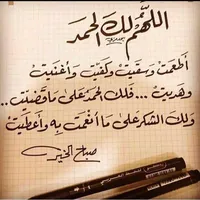 اللهم لك الحمد
أطعمت وسقيت وكفيت وأغنيت
وهديت ... فلك الحمد على ما قضيت ..
ولك الشكر على ما أنعمت به وأعطيت
صباح الخير